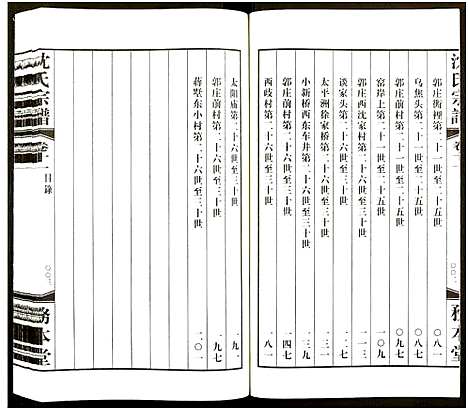 沈氏宗譜
卷十二
〇〇二
務本堂
郭庄街裡第二十一世至二十五世 〇八一
烏焦头第二十一世至二十五世 〇八九
郭庄前村第二十一世至二十五世 〇九七
窑岸上第二十一世至二十五世
郭庄西沈家村第二十六世至三十世 一一三
谈家头第二十六世至三十世 一二七
太平洲徐家桥第二十六世至三十世
小新桥西东车井第二十六世至三十世 一三九
郭庄前村第二十六世至三十世 一四七
西歧村第二十六世至三十世 一八一
太阳庙第二十六世至三十世 一九一
郭庄前村第二十六世至三十世 一九七
蒋墅东小村第二十六世至三十世 二〇一
沈氏宗譜
卷十二
目錄
〇〇三
務本堂